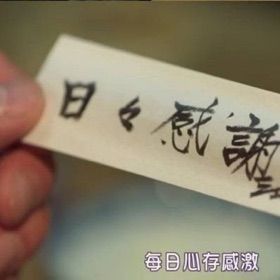 日々感謝
每日心存感激